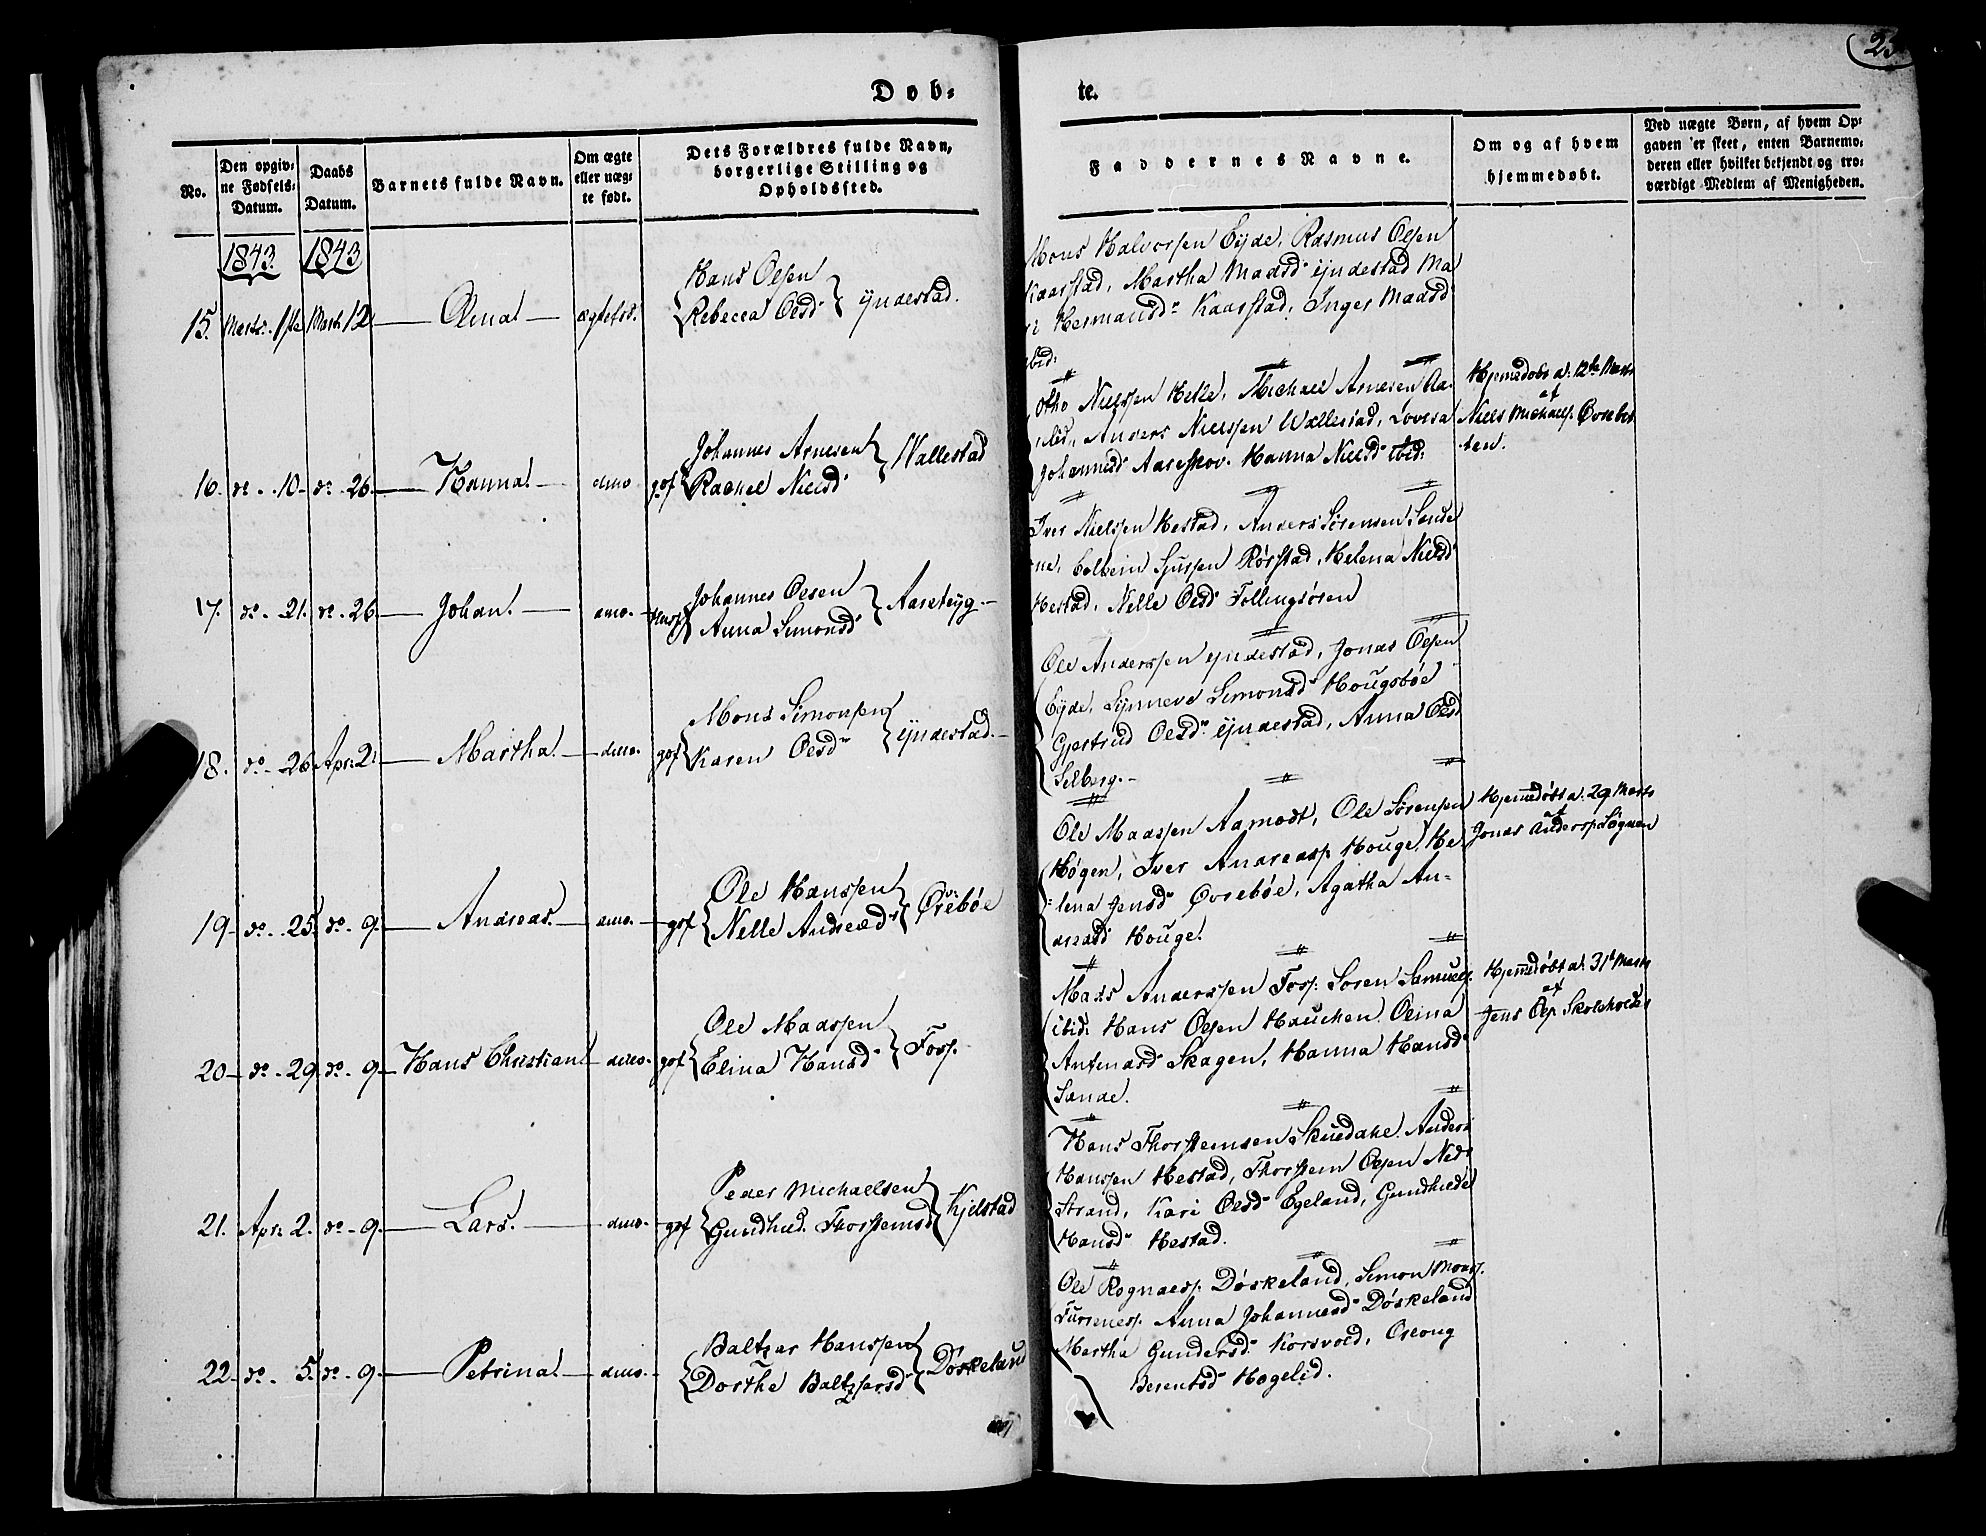 Døb-
te.
No.
Den opgiv-
ne Fødsels-
Datum.
Daabs
Datum.
Barnets fulde Navn.
Om ægte
eller uæg-
te født.
Dets Forældres fulde Navn,
borgerlige Stilling og
Opholdssted.
Faddernes Navne.
Om og af hvem
hjemmedøbt.
Ved uægte Børn, af hvem Op-
gaven er skeet, enten Barnemo-
deren eller hvilket bekjendt og tro-
værdigt Medlem af Menigheden.
1843. 1843
15. Marts. 1ste Marts 12 Olina ægtefød.
Hans Olsen
Rebecca Olsd Yndestad.
Mons Halvorsen Eyde, Rasmus Olsen
Kaarstad, Martha Madsd Yndestad Ma
Hermansd Kaarstad, Inger Madsd
ibid:
16. do 10 do 26. Hanna dmo gf
Johannes Arnesen
Rachel Nielsd Wallestad
Otho Nielssen Helle, Michael Arnesen Aa-
Anders Nielssen Wallestad, Lovisa
Johannesd Aareskov. Hanna Nielsd ibid:
Hjemmedøbt d. 12te Marts
af
Niels Michaels. Øvrebot-
ten.
17. do 21. do 26 Johan. dmo.
Johannes Olsen
Anna Simonsd
Iver Nielssen Hestad, Anders Sørensen Sande
ne, Sjurssen Rørstad, Helena Nielsd
Hestad, Nelle Olsd Follingsøren
18. do 26 Apr: 2 Martha dmo. gf
Mons Simonsen
Karen Olsd Yndestad.
Ole Anderssen Yndestad, Jonas Olsen
Eyde, Synneve Simonsd Hougsbøe
Gjertrud Olsd Yndestad, Anna Olsd
Selberg.
19 do 25. do 9. Andreas. dmo. gf
Ole Hanssen
Nelle Andreæd Øvrebøe
Ole Maassen Aamodt, Ole Sørensen
Høgen, Iver Andreass. Houge, He-
lena Jensd Øvrebøe, Agatha An-
dreasd Houge.
Hjemmedøbt d. 29 Marts
af
Jonas Anders. Sognen
20 do 29 do 9 Hans Christian dmo. gf
Ole Madssen
Elina Hansd Fors.
Mads Anderssen Fors. Soren Samuels.
ibid. Hans Olsen Hauchen Olina
Antenasd Skagen, Hanna Hansd
Sande.
Hjemmedøbt d. 31te Marts
af
Jens Ols. Skoleholder
21. Apr. 2. do 9. Lars. dmo. gf
Peder Michaelsen
Gundhild Thorstensd Kjelstad
Hans Thorstensen Skuedahl. Anders
Hanssen Hestad, Thorsten Olsen Ned-
Strand, Kari Olsd Egeland, Gundhilde
Hansd Hestad.
22 do 5. do 9. Petrina dmo.
Baltzer Hanssen
Dorthe Baltzersd Døskeland
Ole Rognaels. Døskeland, Simon Monss.
Anna Johannesd Døskeland
Martha Gundersd Korsvold, Oleong
Berentsd Hagelid.